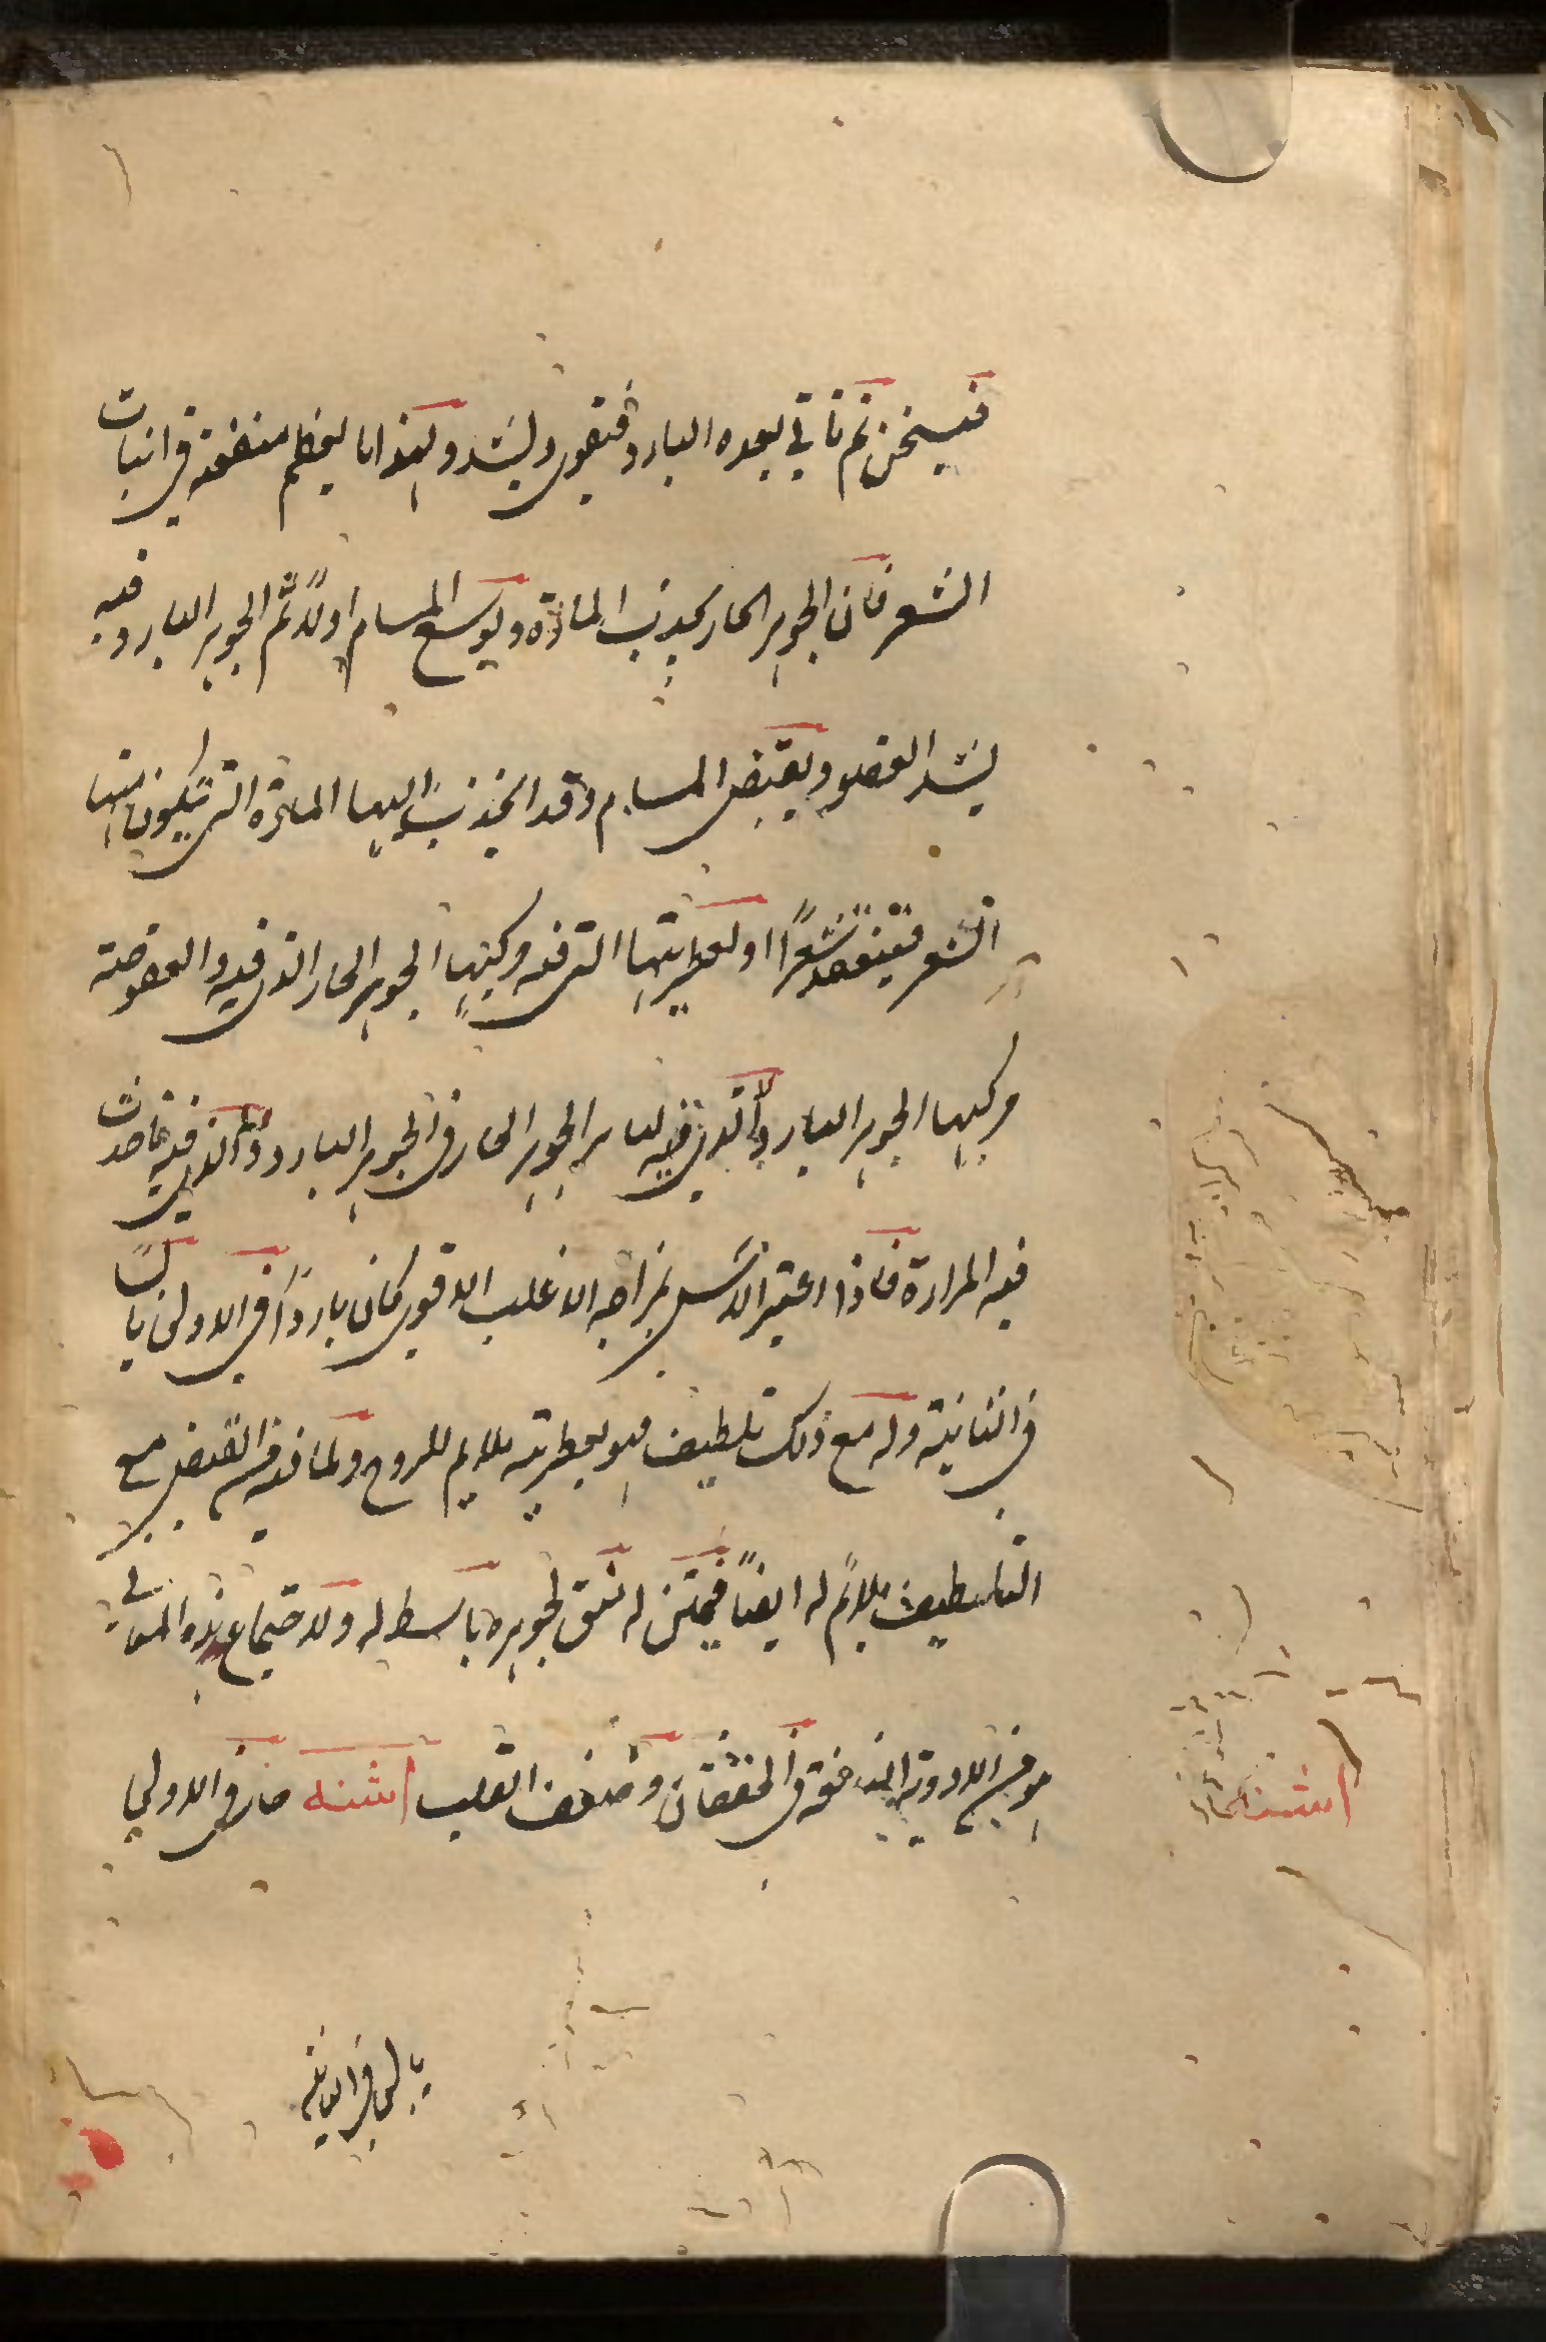 فيسخن ثم تأتي بعده البارد فتقوى ويشد ولهذا ما يعظم منفعته في انبات
الشعر فان الجوهر الحار يجذب المادّة ويوسع المسام اولًا ثم الجوهر البارد فيه
يشد العضو ويقبض المسام وقد انجذبت اليها المادة التي يتكون منها
الشعر فينعقد شعرًا اولعطريتها التي فيه مركبها الجوهر الحار الذي فيه والعفوصة
مركبها الجوهر البارد الذي فيه الجوهر الحار في الجوهر البارد الذي فيه حدث
فيه المرارة فاذا اعتبر الآس بمزاجه الاغلب الاقوى كان باردًا في الاولى يابسًا
في الثانية وله مع ذلك تلطيف فهو بعطريته ملايم للروح ولما فيه من القبض مع
التلطيف ملائم له ايضًا فيمتن له منق لجوهره باسط له ولاجتماع هذه المعاني
هو من الادوية النافعة في الخفقان وضعف القلب اشنه حار في الاولى
اشنه
يابس في الثانية